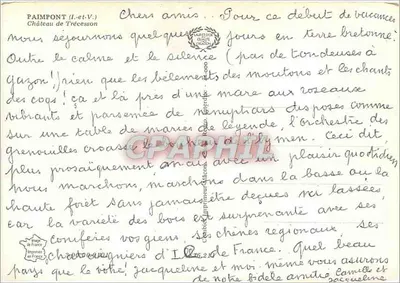 PAIMPONT (I.-et-V.)
Château de Trécesson
Chers amis... Pour ce début de vacances
nous séjournons quelques jours en terre bretonne.
Outre le calme et le silence (pas de tondeuses à
gazon!) rien que les bêlements des moutons et les chants
des coqs! çà et là près d'une mare aux roseaux
vibrants et parsemée de nénuphars disposés comme
sur une table de mariés de légende, l'orchestre des
grenouilles croasse Ceci dit,
plus prosaïquement mais avec un plaisir quotidien
nous marchons, marchons dans la basse ou la
haute forêt sans jamais être déçus ni lassés
car la variété des bois est surprenante avec ses
conifères vosgiens, ses chênes régionaux, ses
chataigniers d'Ile de France. Quel beau
pays que le nôtre! Jacqueline et moi-même vous assurons
de notre fidèle amitié Camille et
Jacqueline
CPAPHIL